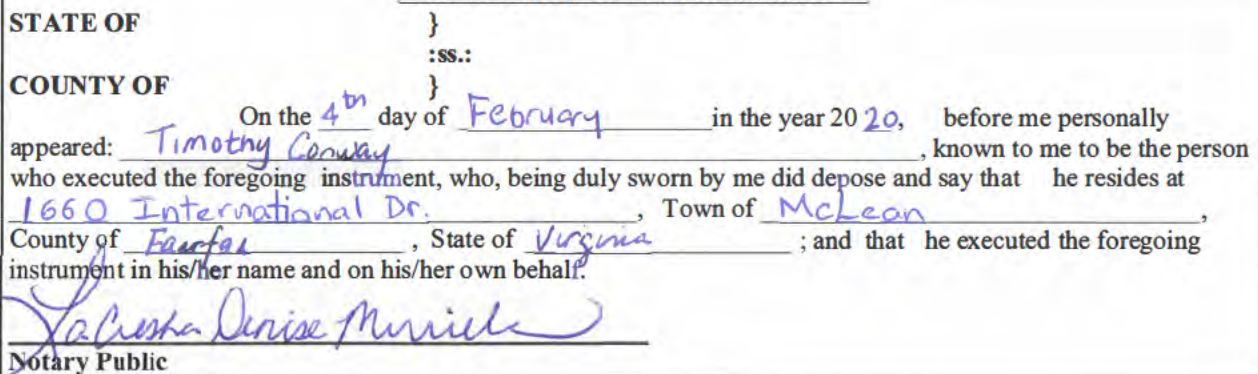 STATE OF }
:ss.:
COUNTY OF }
On the 4th day of February in the year 20 20, before me personally
appeared: Timothy Conway, known to me to be the person
who executed the foregoing instrument, who, being duly sworn by me did depose and say that he resides at
1660 International Dr., Town of McLean,
County of Fairfax, State of Virginia; and that he executed the foregoing
instrument in his/her name and on his/her own behalf.
Denise
Notary Public